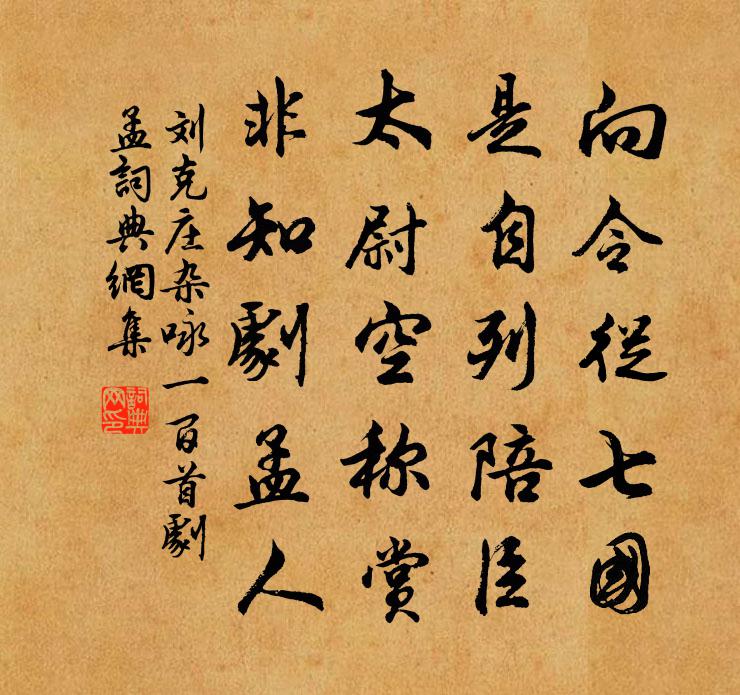 向令從七國
是自列陪臣
太尉空称赏
非知劇孟人
刘克庄杂咏一百首劇
孟詞典網集
詞典网印